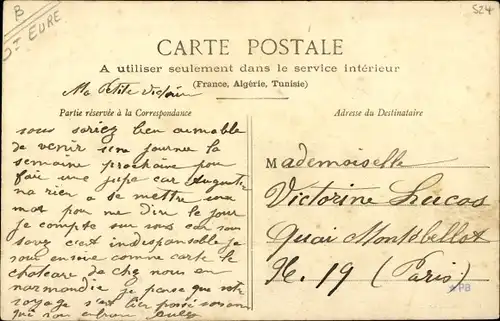 B
Dt EURE
524
CARTE POSTALE
A utiliser seulement dans le service intérieur
(France, Algérie, Tunisie)
Ma Petite Victorine
Partie réservée à la Correspondance
Adresse du Destinataire
vous seriez bien aimable
de venir une journée la
semaine prochaine pour
faie une jupe car Augusta
na rien a se mettre un
mot pou me dire le jour
je compte sur vous car vous
savez c'est indispensable je
vous envoie comme carte le
chateau de che nous en
normandie je pense que votre
voyage s'est bien passé
qui
Mademoiselle
Victorine Lucas
Quai Montebellot
N. 19 (Paris)
PB